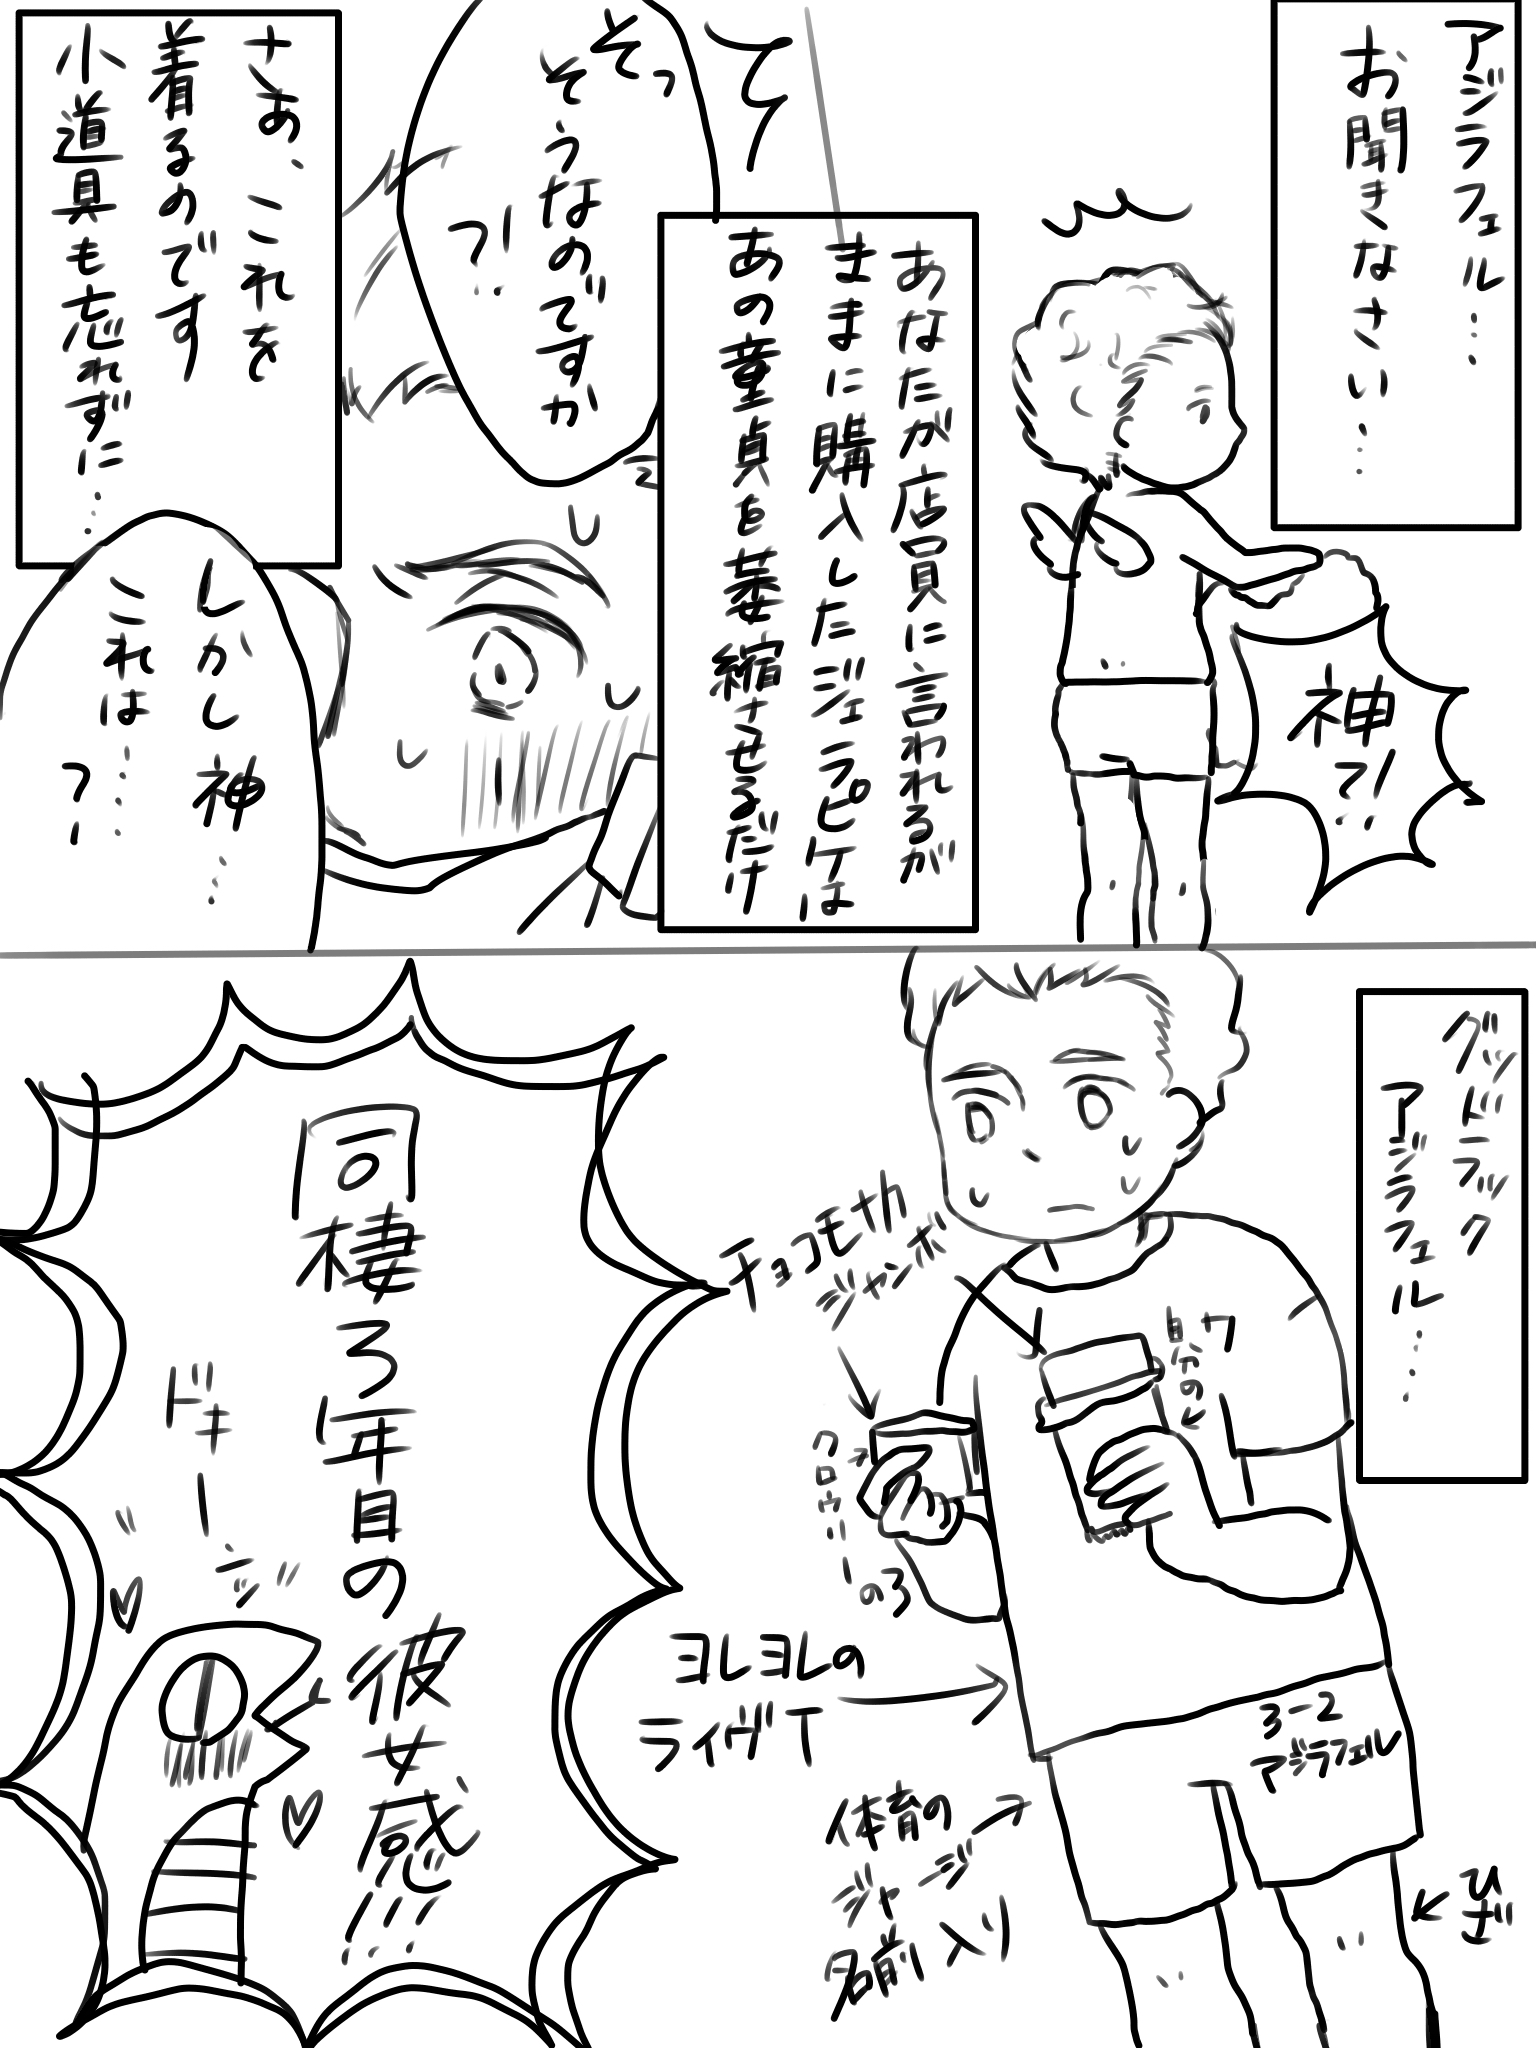 アジラフェル…
お聞きなさい…
神で!?
あなたが店員に言われるが
ままに購入したジェラピケは
あの童貞を萎縮させるだけ
て
そっ
そうなのですか
っ!?
さあ、これを
着るのです
小道具も忘れずに……
しかし神…
これは…
っ!
グッドラック
アジラフェル…
チョコモナカ
ジャンボ
自分の
クロウリーの
ヨレヨレの
ライヴT
3-2
アジラフェル
体育の
ジャージ
名前入り
ひざ
同棲3年目の
彼女感!!
ドキーン